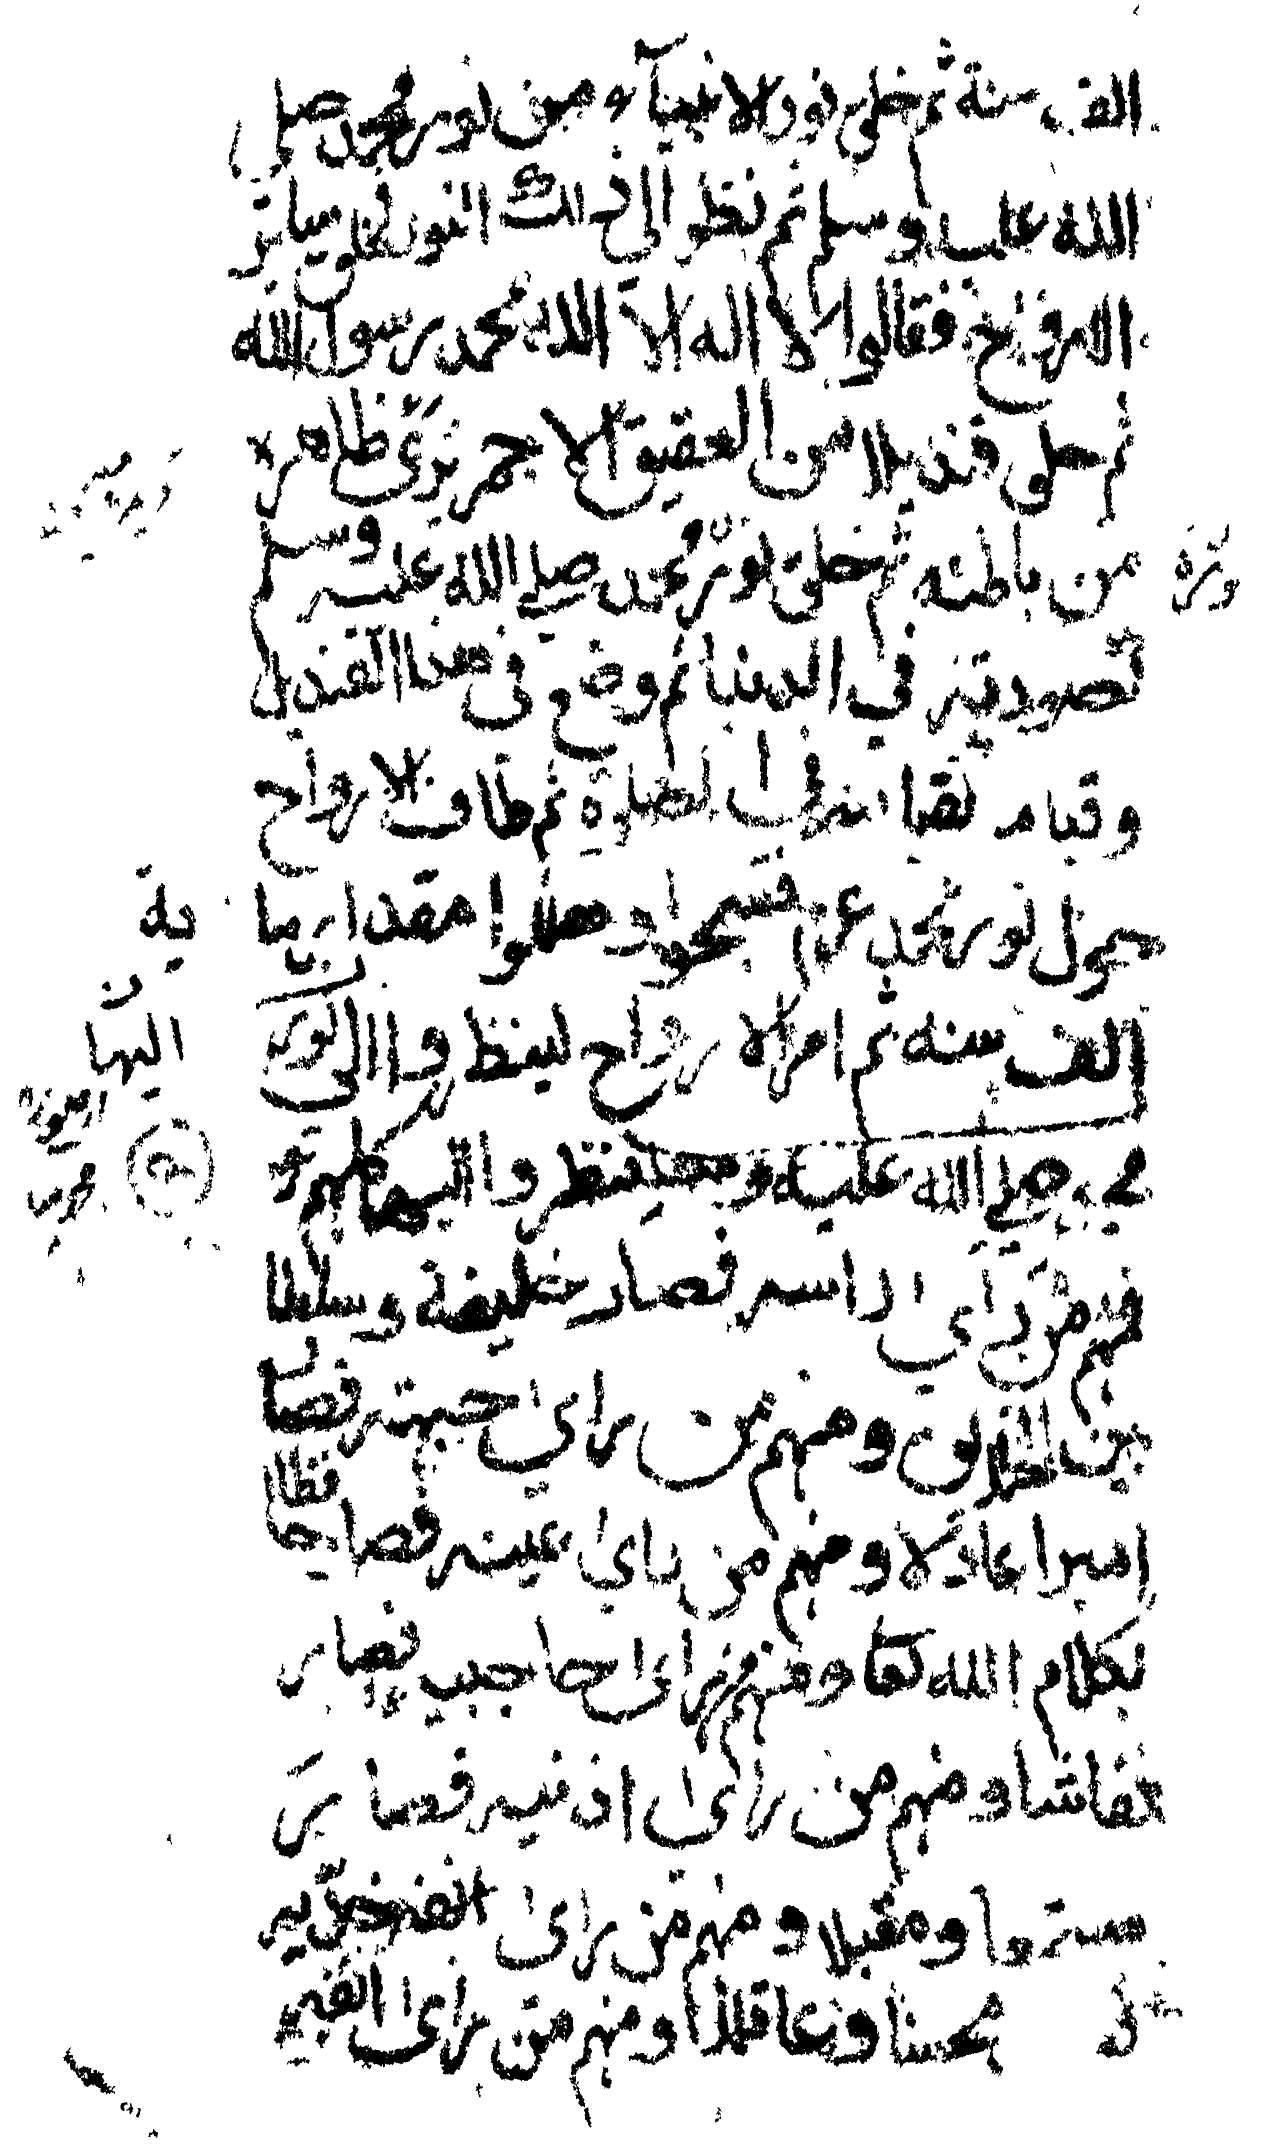 الف سنة ثم خلق نور الانبيآء من نور محمد صلى
الله عليه وسلم ثم نظر الى ذلك النور فخلق سائر
الارواح فقالوا لا اله الا الله محمد رسول الله
ثم خلق قنديلا من العقيق الاحمر يرى ظاهره
من باطنه ثم خلق نور محمد صلى الله عليه وسلم
كصورته في الدنيا ثم وضع في هذا القنديل
وقيام كقيامه في الصلوة ثم طاف الارواح
حول نور محمد عم فسبحوا وهللوا مقدار ماية
الف سنة ثم امر الارواح لينظروا الى نور
محمد صلى الله عليه و لينظروا اليها كلهم
فمنهم من رأى راسه فصار خليفة وسلطانا
بين الخلائق ومنهم من راى جبهته فصار
اميرا عادلا ومنهم من راى عينيه فصار حافظا
لكلام الله تعا ومنهم من راى حاجبيه فصار
نقاشا ومنهم من راى اذنيه فصار
مستمعا ومقبلا ومنهم من راى خديه
محسنا وعاقلا ومنهم من راى
اليها